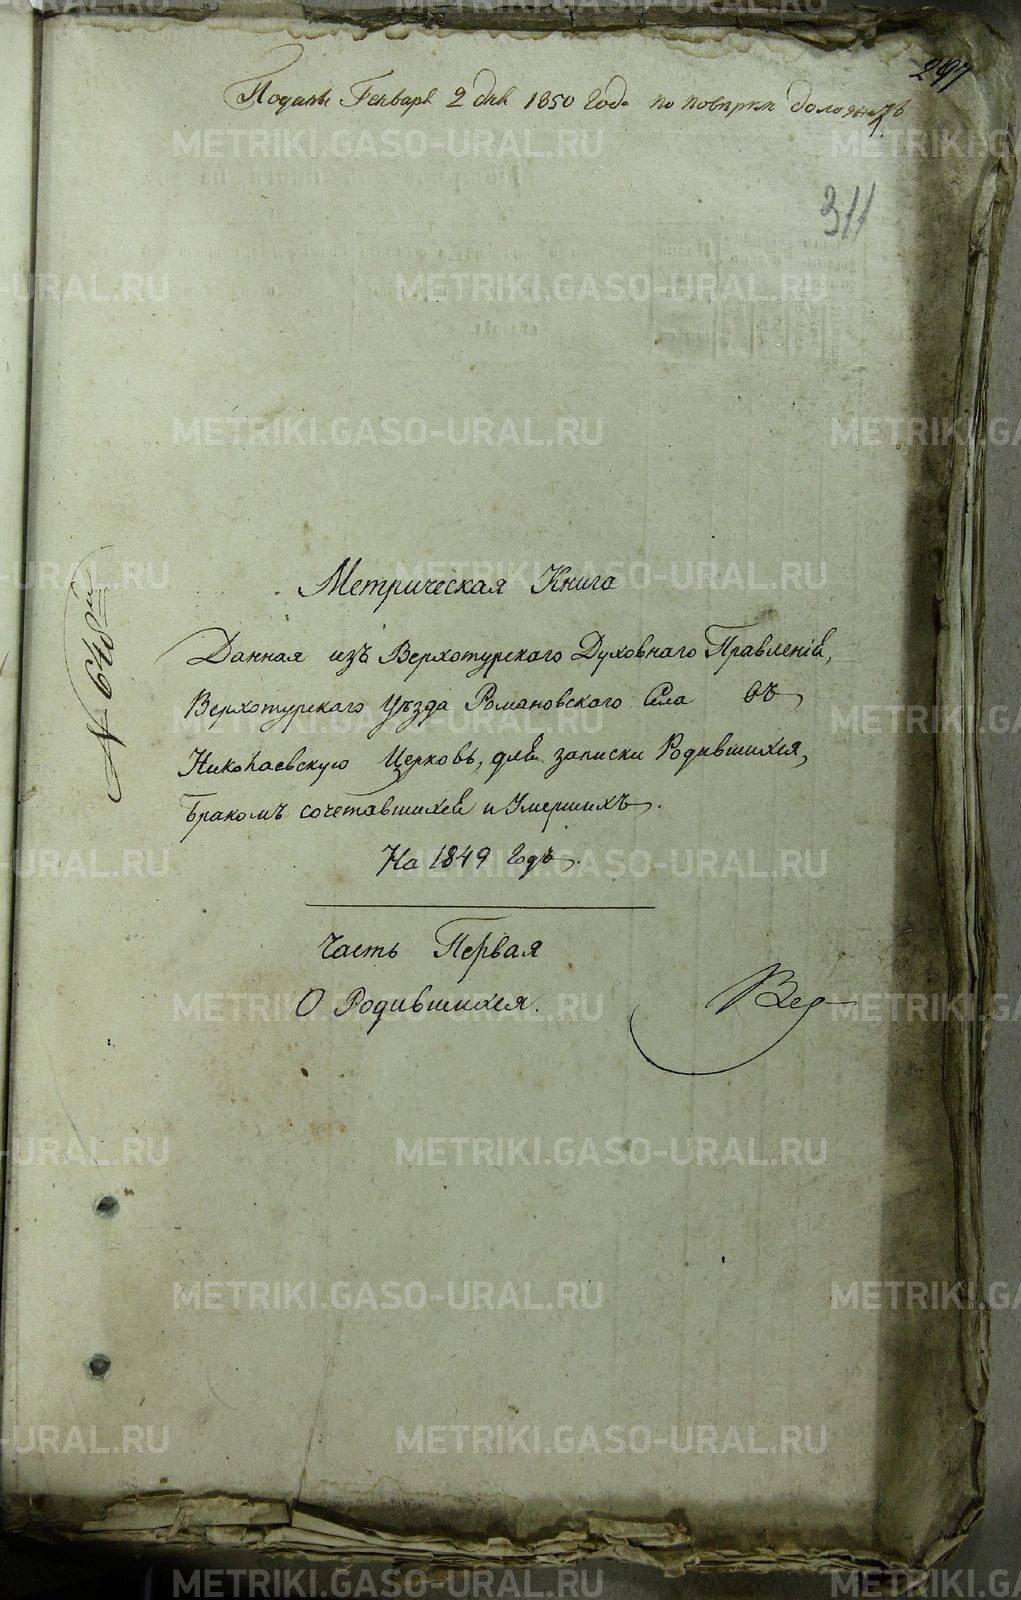 297
Поданы Генваря 2 дня 1850 Года по поверки доложить
311
Метрическая Книга
Данная изъ Верхотурскаго Духовнаго Правленія,
Верхотурскаго Уѣзда Романовскаго Села въ
Николаевскую Церковь, для записки Родившихся,
Бракомъ сочетавшихся и Умершихъ.
На 1849 Годъ.
Часть Первая
О Родившихся.
№ 648й
METRIKI.GASO-URAL.RU